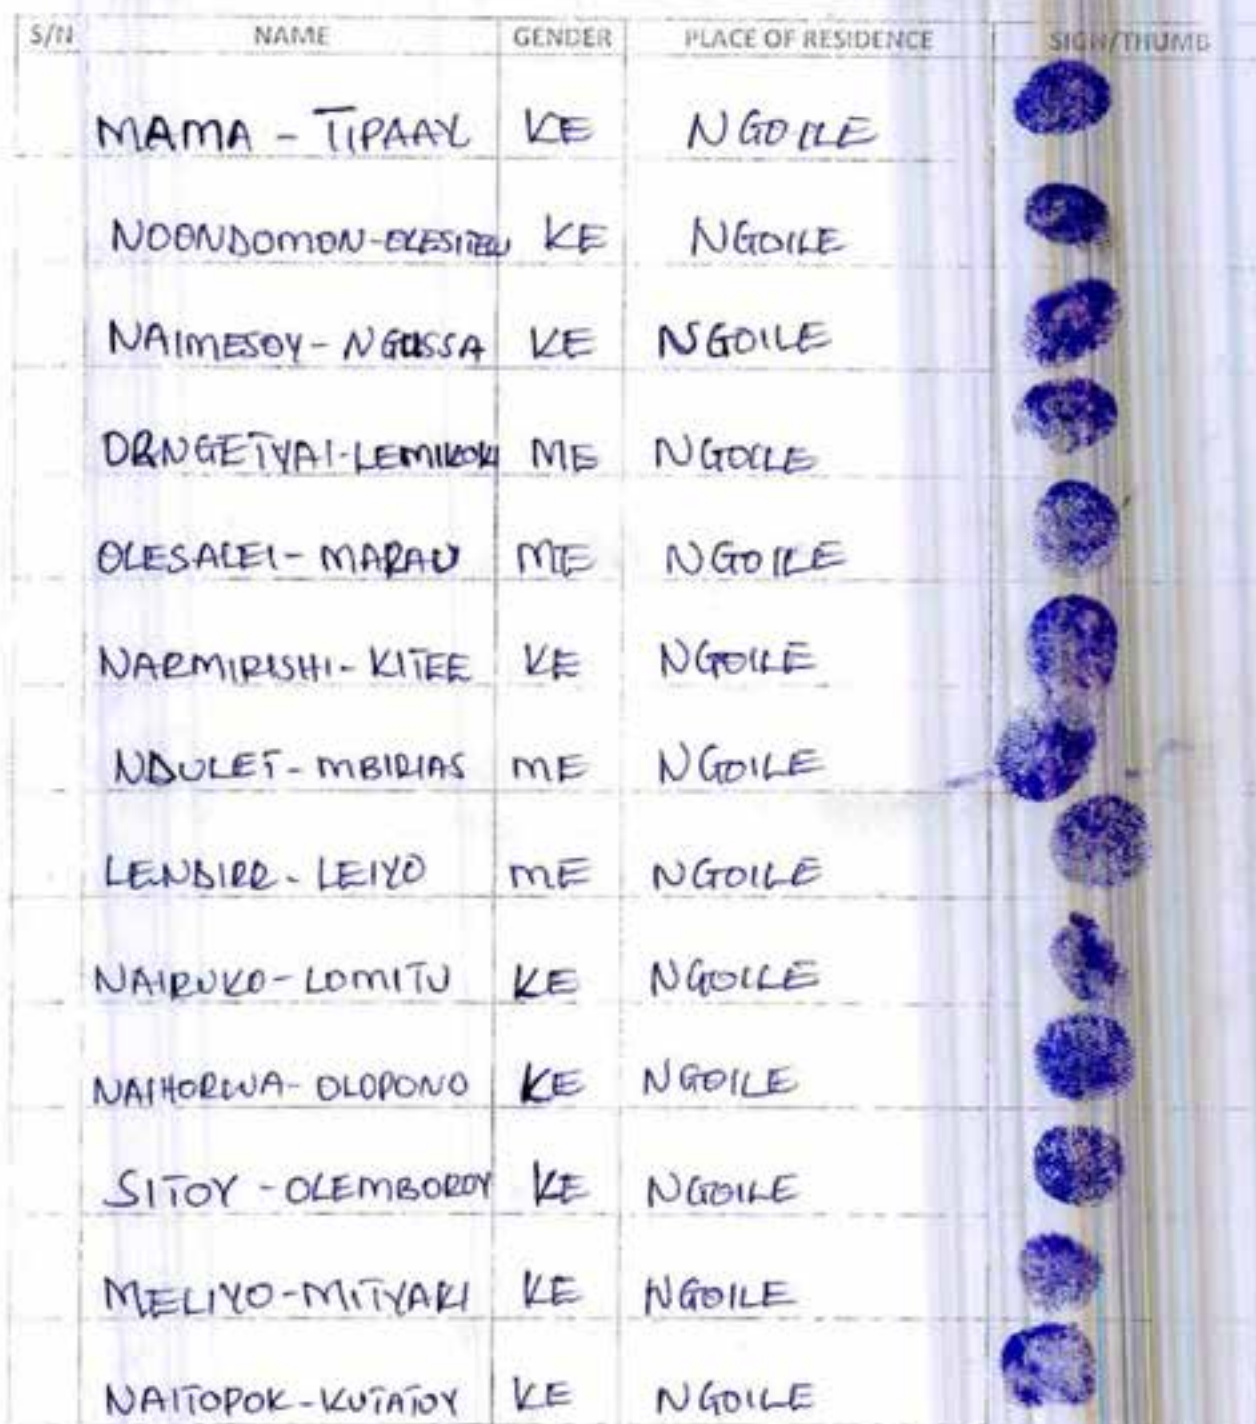 S/N NAME GENDER PLACE OF RESIDENCE SIGN/THUMB
MAMA - TIPAAY KE NGOILE
NOONDOMON-OLESITEU KE NGOILE
NAIMESOY - NGUSSA KE NGOILE
ORNGETYAI-LEMIKOKI ME NGOILE
OLESALEI - MARAU ME NGOILE
NARMIRISHI - KITEE KE NGOILE
NDULET - MBIRIAS ME NGOILE
LENDIRR - LEIYO ME NGOILE
NAIRUKO - LOMITU KE NGOILE
NAIHORWA - OLOPONO KE NGOILE
SITOY - OLEMBOROY KE NGOILE
MELIYO - MITYAKI KE NGOILE
NAITOPOK - KUTATOY KE NGOILE